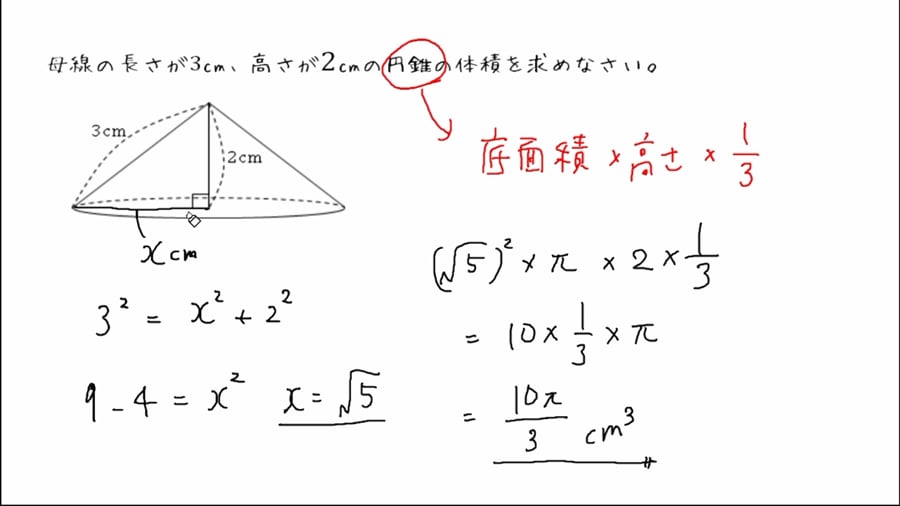 母線の長さが3cm、高さが2cmの円錐の体積を求めなさい。
3cm
2cm
xcm
3² = x² + 2²
9 - 4 = x² x = √5
底面積 × 高さ × 1/3
(√5)² × π × 2 × 1/3
= 10 × 1/3 × π
= 10π/3 cm³